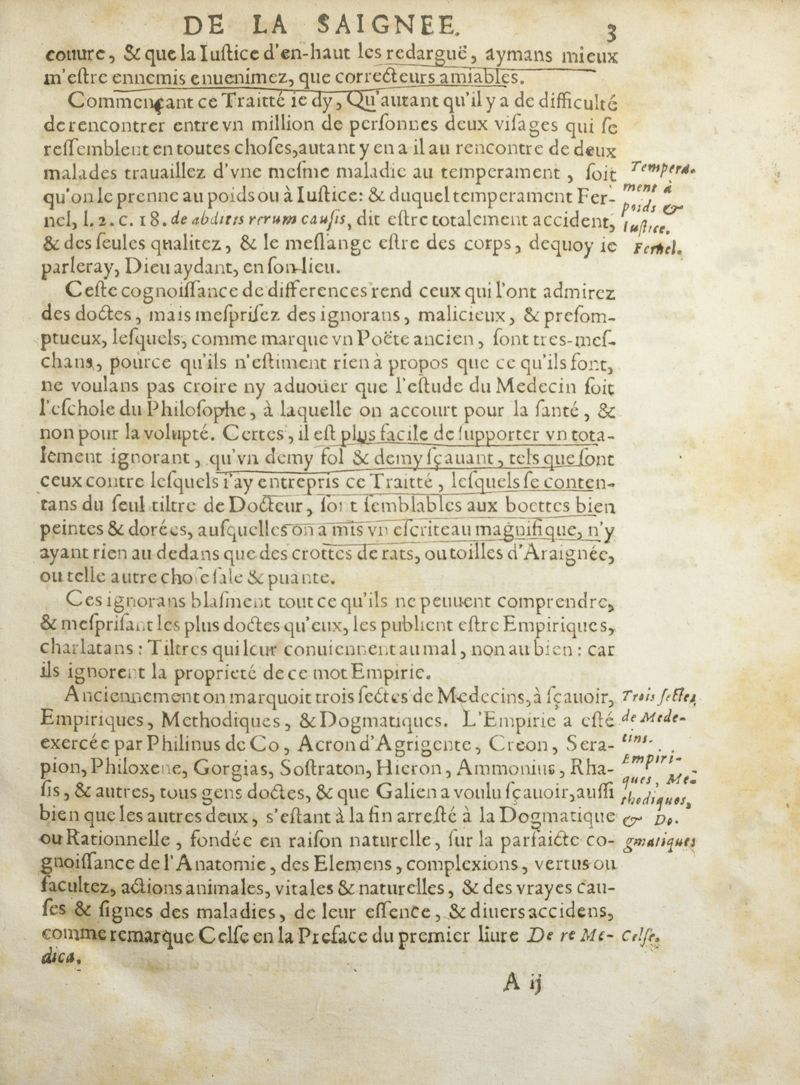 DE LA SAIGNEE. 3
couure, & que la Iuſtice d'en-haut les redarguë, aymans mieux
m'eſtre ennemis enuenimez, que correcteurs amiables.
Commençant ce Traitté ie dy, Qu'autant qu'il y a de difficulté
de rencontrer entre vn million de perſonnes deux viſages qui ſe
reſſemblent en toutes choſes, autant y en a il au rencontre de deux
malades trauaillez d'vne meſme maladie au temperament, ſoit
qu'on le prenne au poids ou à Iuſtice: & duquel temperament Fer-
nel, l. 2. c. 18. de abditis rerum cauſis, dit eſtre totalement accident,
& des ſeules qualitez, & le meſlange eſtre des corps, dequoy ie
parleray, Dieu aydant, en ſon lieu.
Tempera-
ment à
poids &
Iuſtice.
Fernel.
Ceſte cognoiſſance de differences rend ceux qui l'ont admirez
des doctes, mais meſpriſez des ignorans, malicieux, & preſom-
ptueux, leſquels, comme marque vn Poëte ancien, ſont tres-meſ-
chans, pource qu'ils n'eſtiment rien à propos que ce qu'ils font,
ne voulans pas croire ny aduoüer que l'eſtude du Medecin ſoit
l'eſchole du Philoſophe, à laquelle on accourt pour la ſanté, &
non pour la volupté. Certes, il eſt plus facile de ſupporter vn tota-
lement ignorant, qu'vn demy fol & demy ſçauant, tels que ſont
ceux contre leſquels i'ay entrepris ce Traitté, leſquels ſe conten-
tans du ſeul tiltre de Docteur, ſont ſemblables aux boettes bien
peintes & dorées, auſquelles on a mis vn eſcriteau magnifique, n'y
ayant rien au dedans que des crottes de rats, ou toilles d'Araignée,
ou telle autre choſe ſale & puante.
Ces ignorans blaſment tout ce qu'ils ne peuuent comprendre,
& meſpriſant les plus doctes qu'eux, les publient eſtre Empiriques,
charlatans: Tiltres qui leur conuiennent au mal, non au bien: car
ils ignorent la proprieté de ce mot Empirie.
Anciennement on marquoit trois ſectes de Medecins, à ſçauoir,
Empiriques, Methodiques, & Dogmatiques. L'Empirie a eſté
exercée par Philinus de Co, Acron d'Agrigente, Creon, Sera-
pion, Philoxene, Gorgias, Soſtraton, Hieron, Ammonius, Rha-
ſis, & autres, tous gens doctes, & que Galien a voulu ſçauoir, auſſi
bien que les autres deux, s'eſtant à la fin arreſté à la Dogmatique
ou Rationnelle, fondée en raiſon naturelle, ſur la parfaicte co-
gnoiſſance de l'Anatomie, des Elemens, complexions, vertus ou
facultez, actions animales, vitales & naturelles, & des vrayes cau-
ſes & ſignes des maladies, de leur eſſence, & diuers accidens,
comme remarque Celſe en la Preface du premier liure De re Me-
dica.
Trois ſectes
de Mede-
cins.
Empiri-
ques, Me-
thodiques,
& Do-
gmatiques
Celſe.
A ij